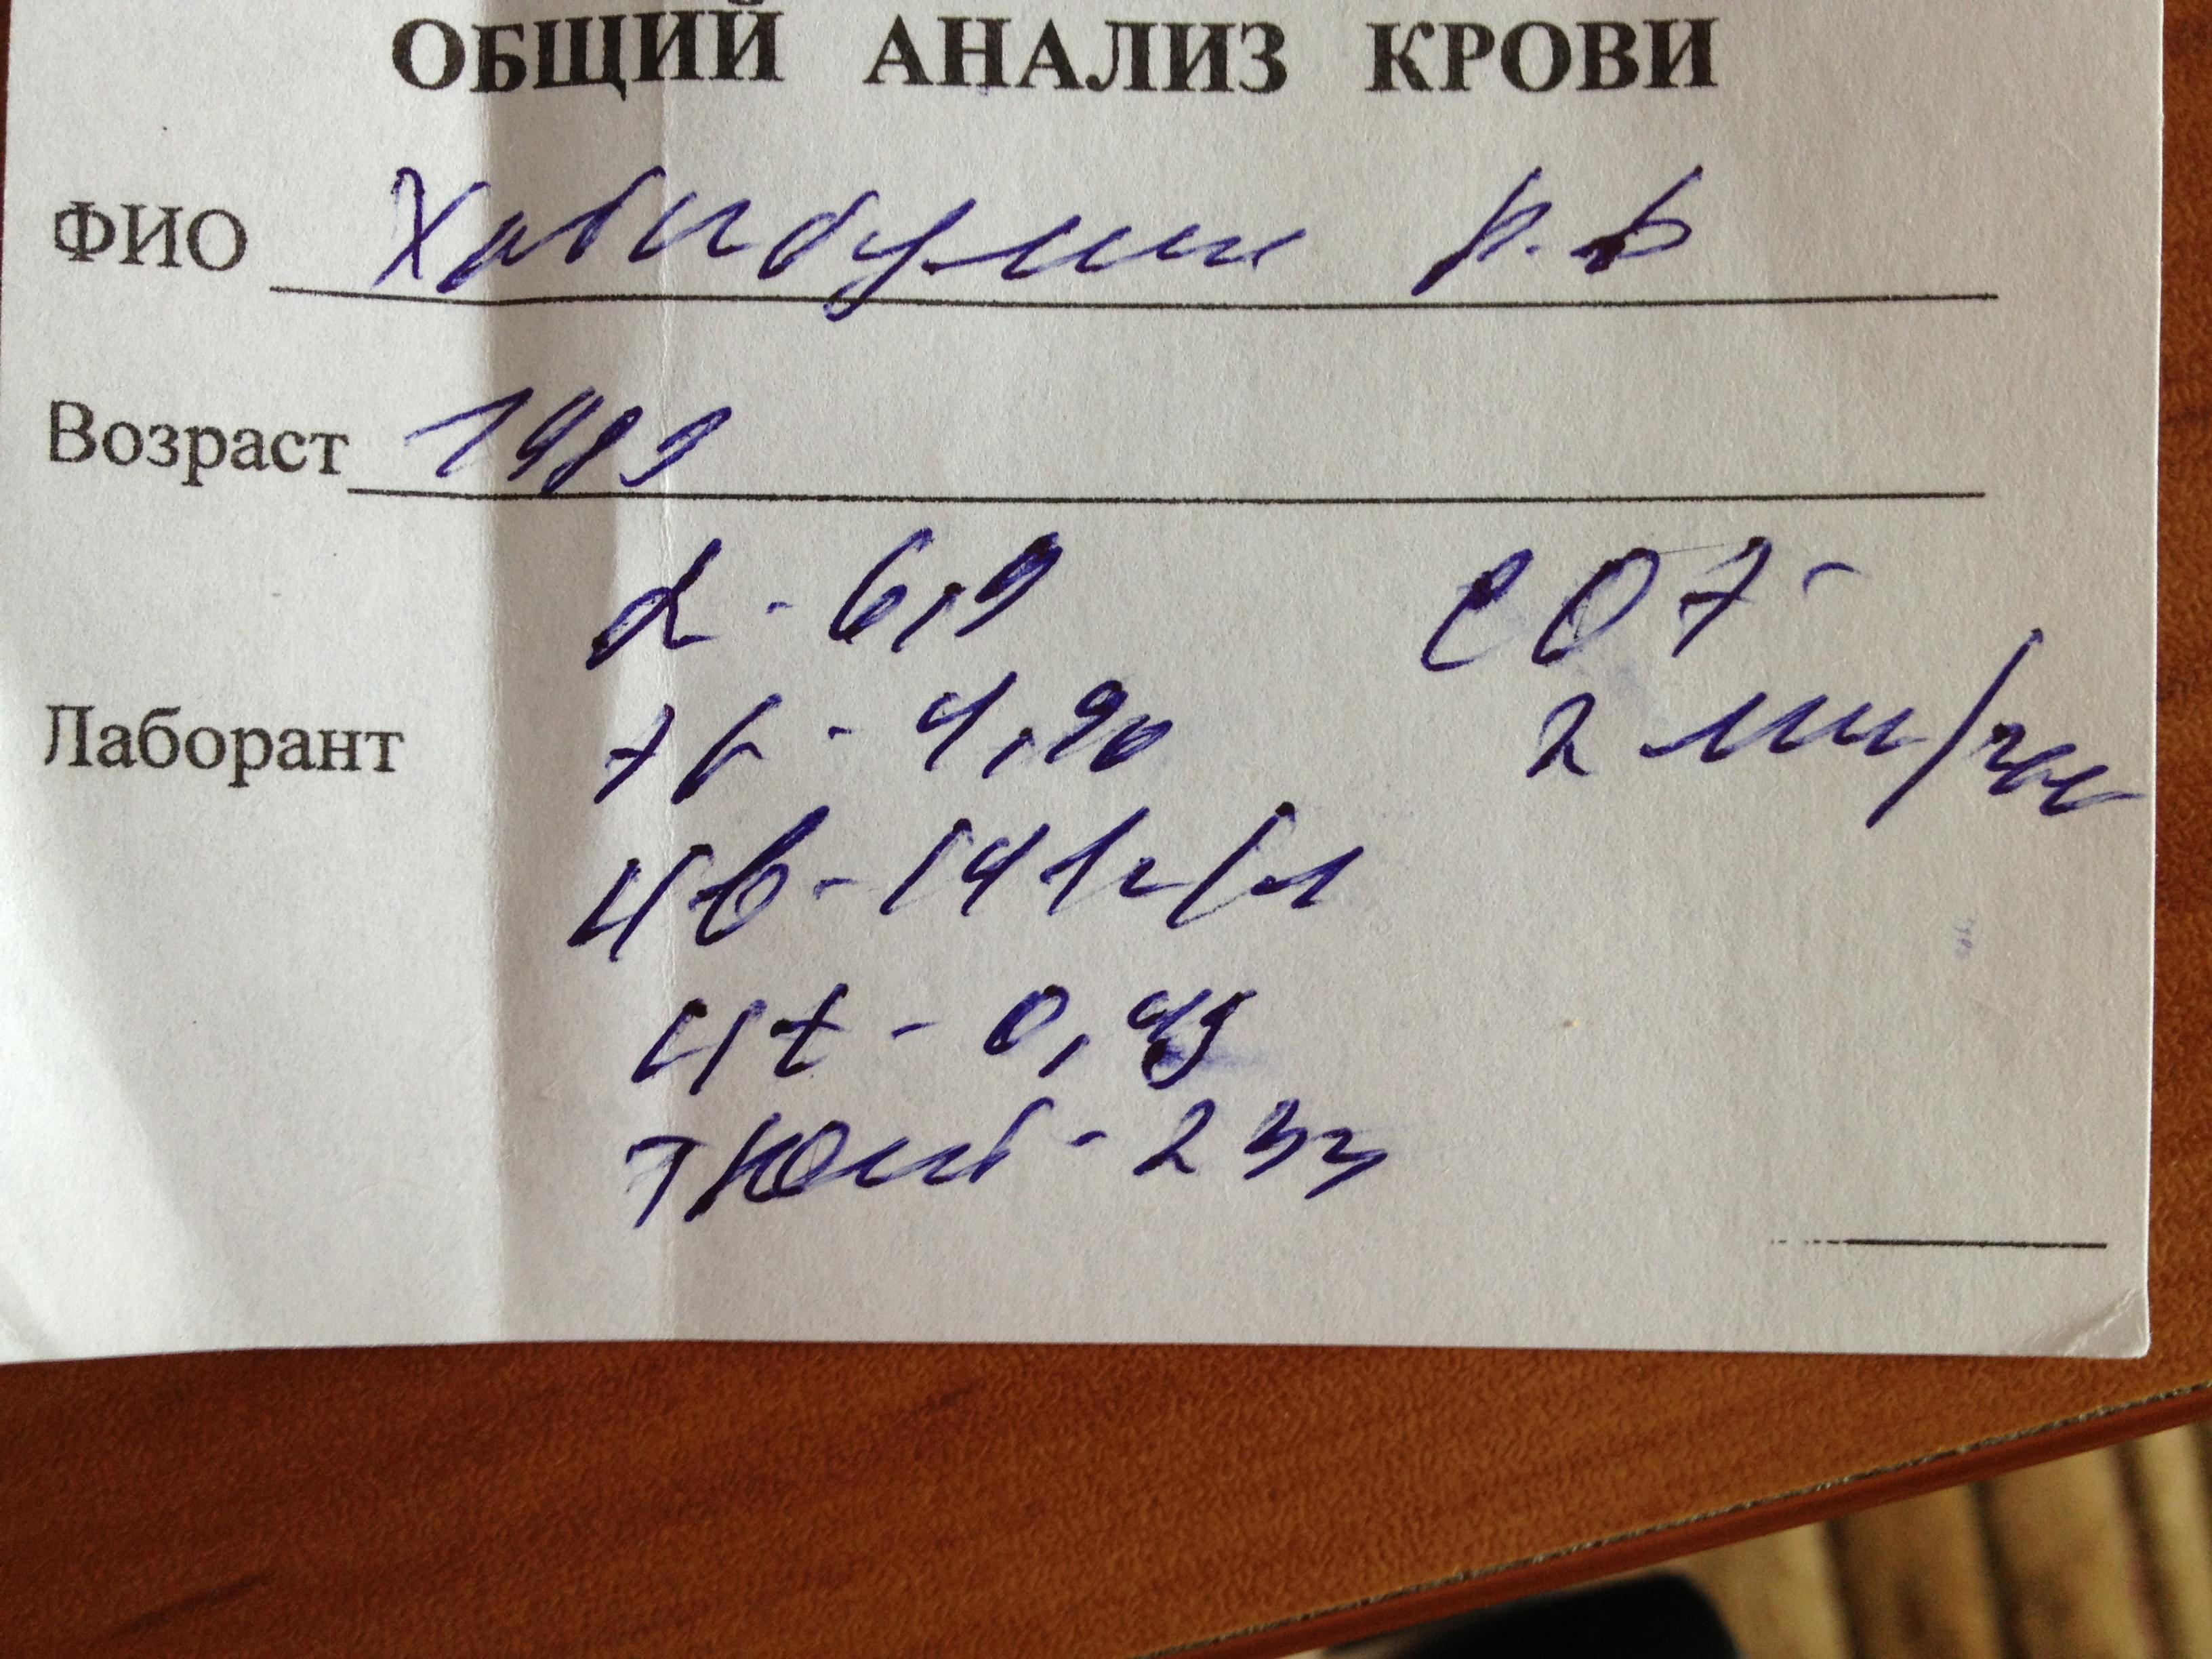 ОБЩИЙ АНАЛИЗ КРОВИ
ФИО Хабибулин Р.В
Возраст 1983
L - 6,9 СОЭ -
Лаборант Эr - 4,90 2 мм/час
Hb - 141 г/л
Ht - 0,43
Тромб - 233